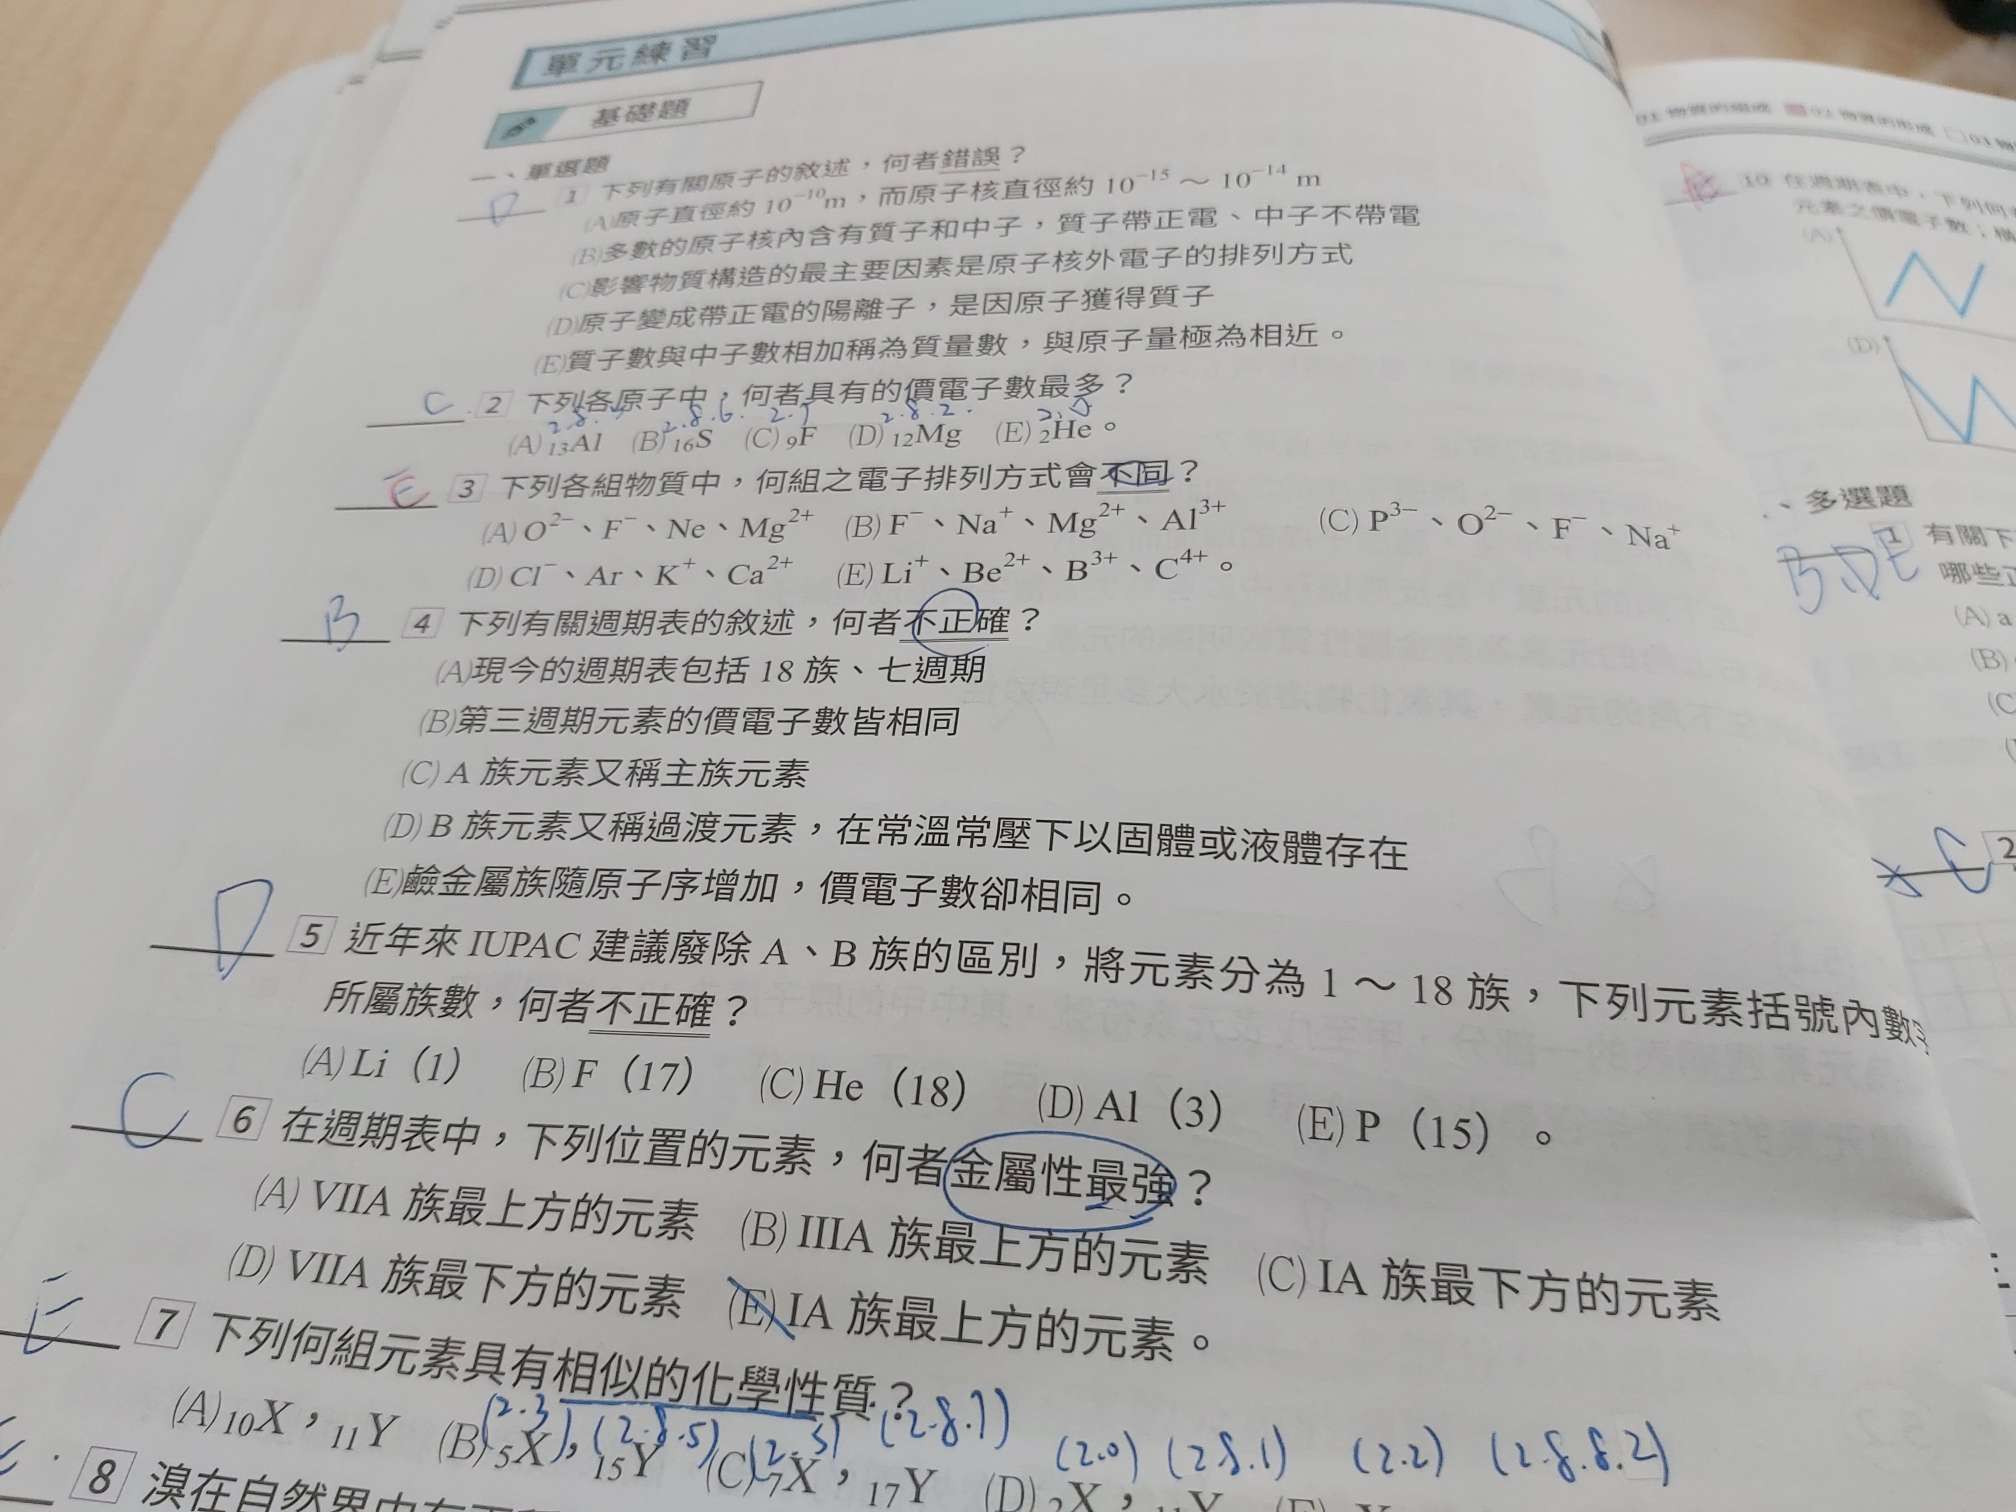 單元練習
基礎題
一、單選題
D 1 下列有關原子的敘述，何者錯誤？
(A)原子直徑約 10⁻¹⁰m，而原子核直徑約 10⁻¹⁵～10⁻¹⁴ m
(B)多數的原子核內含有質子和中子，質子帶正電、中子不帶電
(C)影響物質構造的最主要因素是原子核外電子的排列方式
(D)原子變成帶正電的陽離子，是因原子獲得質子
(E)質子數與中子數相加稱為質量數，與原子量極為相近。
C 2 下列各原子中，何者具有的價電子數最多？
2.8.6. 2.7 2.8.2.
(A) ₁₃Al (B) ₁₆S (C) ₉F (D) ₁₂Mg (E) ₂He。
E 3 下列各組物質中，何組之電子排列方式會不同？
(A) O²⁻、F⁻、Ne、Mg²⁺ (B) F⁻、Na⁺、Mg²⁺、Al³⁺ (C) P³⁻、O²⁻、F⁻、Na⁺
(D) Cl⁻、Ar、K⁺、Ca²⁺ (E) Li⁺、Be²⁺、B³⁺、C⁴⁺。
B 4 下列有關週期表的敘述，何者不正確？
(A)現今的週期表包括 18 族、七週期
(B)第三週期元素的價電子數皆相同
(C) A 族元素又稱主族元素
(D) B 族元素又稱過渡元素，在常溫常壓下以固體或液體存在
(E)鹼金屬族隨原子序增加，價電子數卻相同。
D 5 近年來 IUPAC 建議廢除 A、B 族的區別，將元素分為 1～18 族，下列元素括號內數字
所屬族數，何者不正確？
(A) Li（1） (B) F（17） (C) He（18） (D) Al（3） (E) P（15）。
C 6 在週期表中，下列位置的元素，何者金屬性最強？
(A) VIIA 族最上方的元素 (B) IIIA 族最上方的元素 (C) IA 族最下方的元素
(D) VIIA 族最下方的元素 (E) IA 族最上方的元素。
E 7 下列何組元素具有相似的化學性質？
(2.3), (2.8.5) (2.5) (2.8.7) (2.0) (2.8.1) (2.2) (2.8.8.2)
(A) ₁₀X，₁₁Y (B) ₅X，₁₅Y (C) ₇X，₁₇Y (D) ₂X，₁₁Y
8 溴在自然界中有
01 物質的組成 02 物質的形成 03
10 在週期表中，下列何
元素之價電子數；橫
(A)
(D)
、多選題
BDE 1 有關下
哪些正
(A) a
(B)
(C
2